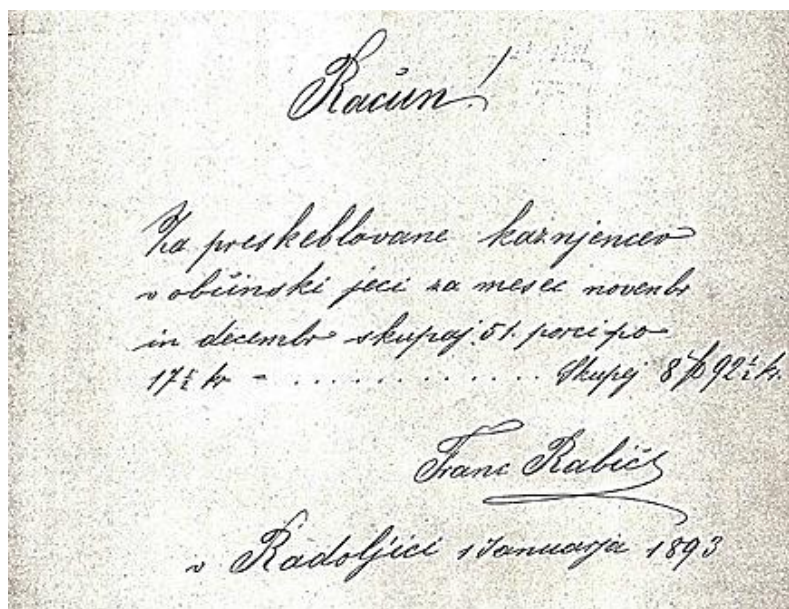 Račun!
Za preskeblovane kaznjencev
v občinski ječi za mesec novenbr
in decembr skupaj 51. porci po
17½ kr - . . . . . . . . . . . . Skupej 8 f 92½ kr.
Franc Rabič
v Radoljici 1 Januarja 1893